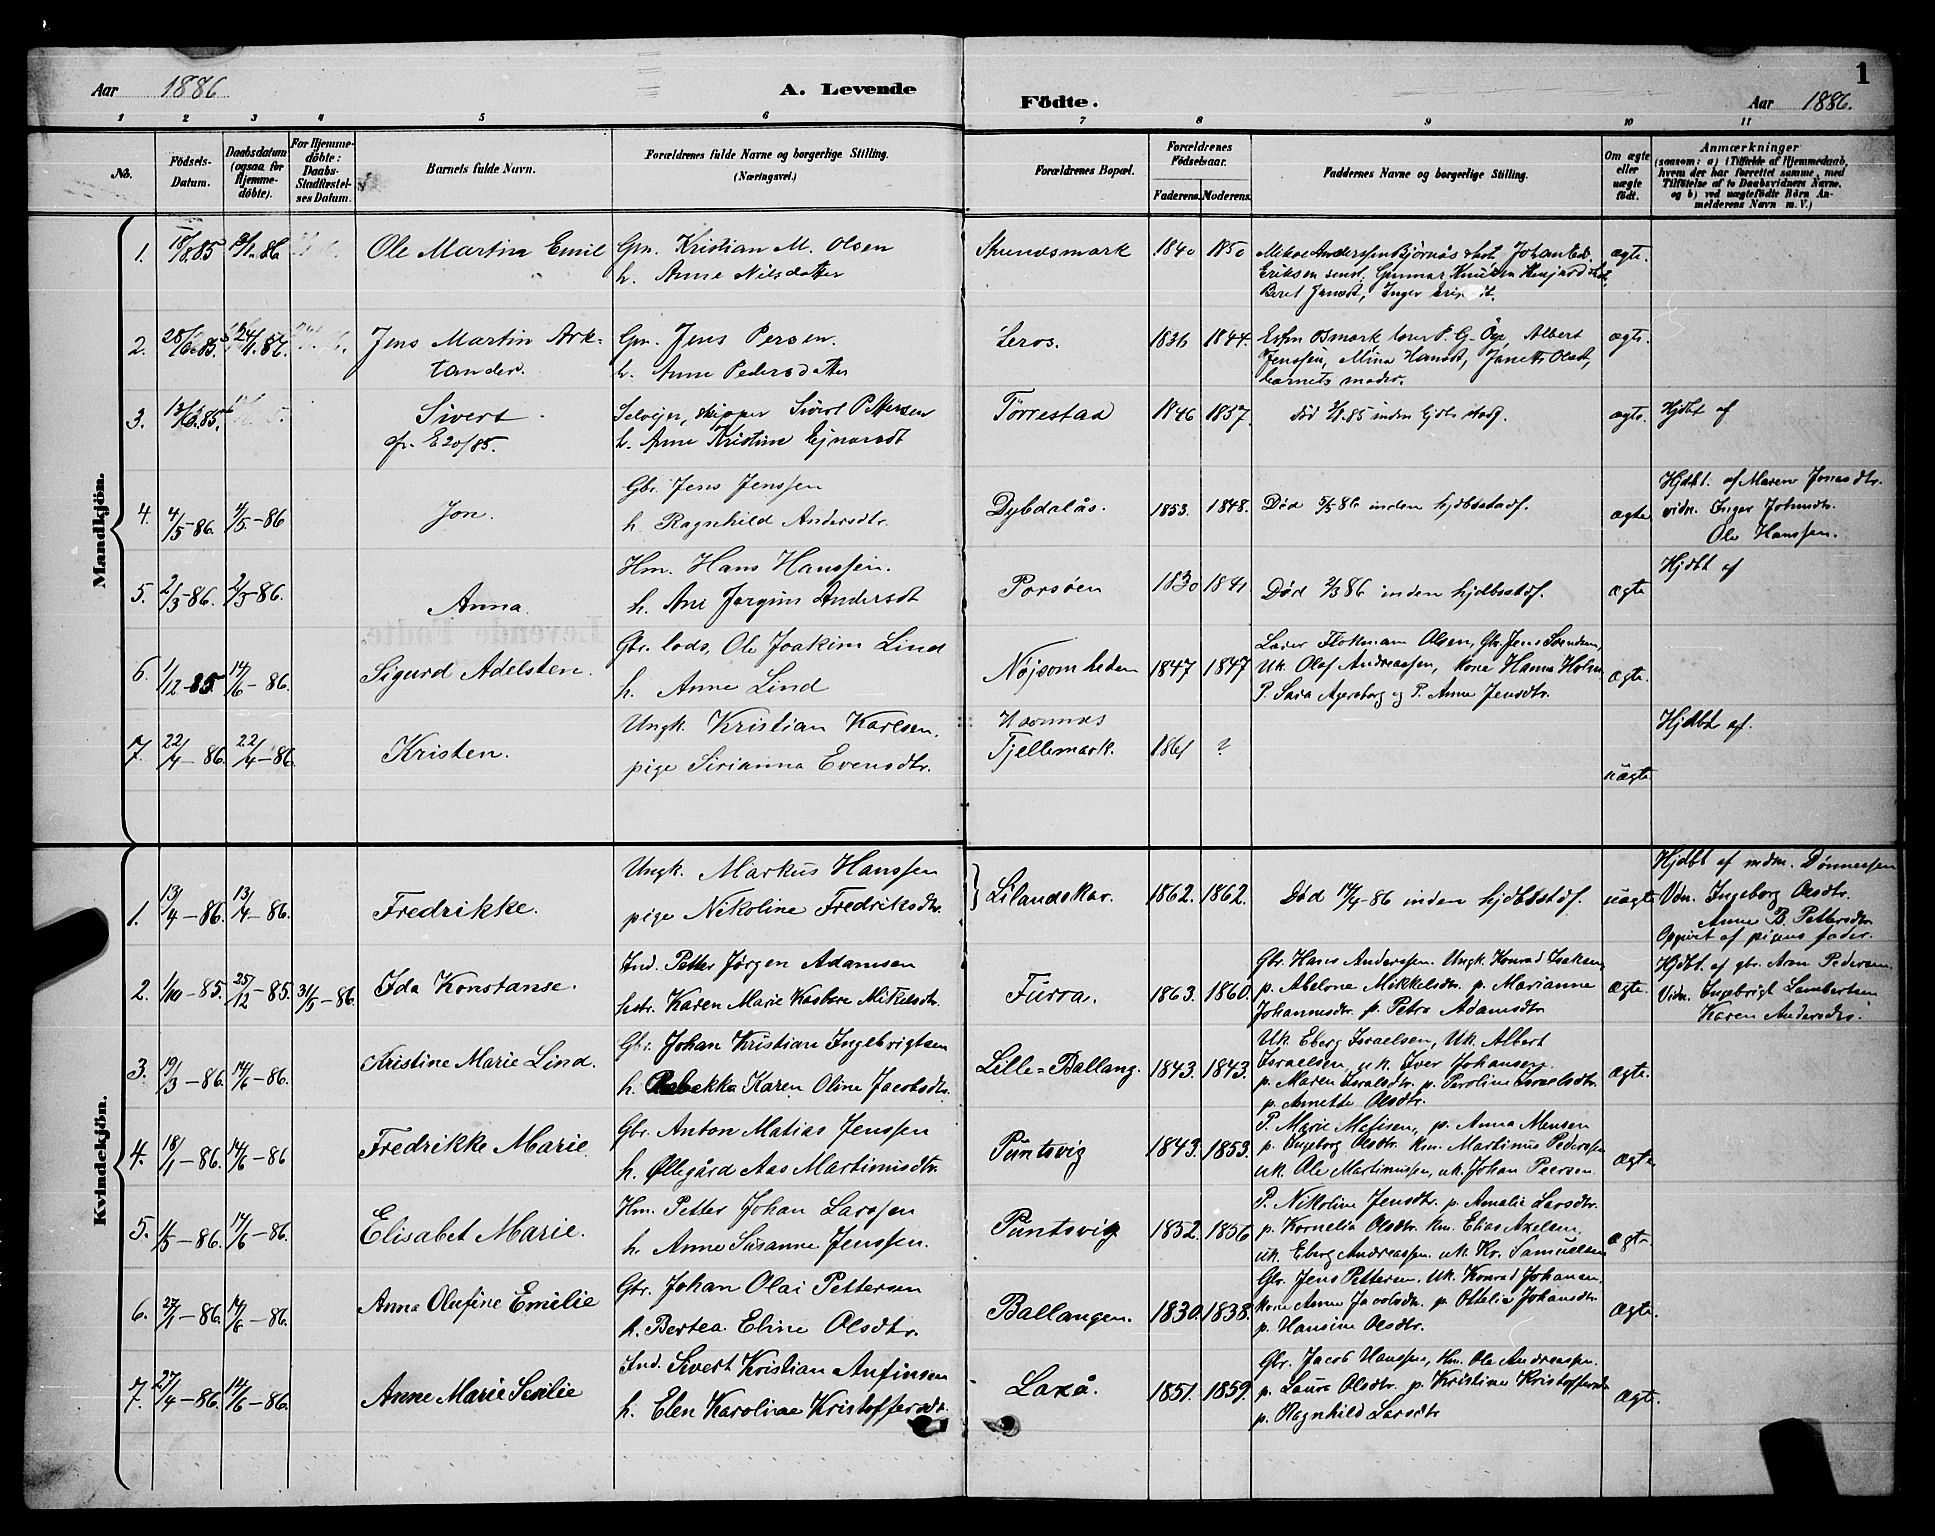 1
Aar 1886
A. Levende
Födte.
Aar 1886.
1 2 3 4 5 6 7 8 9 10 11
No.
Födsels-Datum.
Daabsdatum (ogsaa for Hjemme-döbte).
For Hjemme-döbte: Daabs-Stadfæstel-ses Datum.
Barnets fulde Navn.
Forældrenes fulde Navne og borgerlige Stilling. (Næringsvei.)
Forældrenes Bopæl.
Forældrenes Födselsaar.
Faderens. Moderens.
Faddernes Navne og borgerlige Stilling.
Om ægte eller uægte födt.
Anmærkninger
(saasom: a) i Tilfælde af Hjemmedaab, hvem der har forrettet samme, med Tilföielse af to Daabsvidners Navne, og b) ved uægtefödte Börn An-melderens Navn m. V.)
Mandkjön.
1. 85 86 Ole Martin Emil
Gm. Kristian M. Olsen
h. Anne Nilsdatter
1840 1850
ægte.
2. 85. Jens Martin Ark-
tander.
Gm. Jens Persen.
h. Anne Pedersdatter
Leros. 1836 1844.
Albert
Jenssen, Mina Hansdt, Olsdt,
barnets moder.
ægte.
3. 85. Sivert
cfr. E 20/85.
Selvejer, skipper Sivert Pettersen
h. Anne Kristine Ejnarsdt
Tørrestad 1846 1857.
død 85 inden hjdbs stadf.
ægte. Hjdbt af
4. 4/5-86. 4/5-86 Jon.
Gbr. Jens Jenssen
h. Ragnhild Andersdtr.
Dybdalås. 1853. 1848.
Død 5/5 86 inden hjdbsstadf.
ægte
Hjdbt. af Maren Jonasdtr.
vidn. Inger Johnsdtr.
Ole Hanssen.
5. 2/3-86. 2/3-86. Anna.
Hm. Hans Hanssen.
h. Ane Jørgine Andersdt
Porsøen 1830 1841
Død 2/3 86 inden hjdbsstdf.
ægte
Hjdbt af
6. 1/12-85 14/6-86. Sigurd Adelsten.
Gbr. lods, Ole Joakim Lind
h. Anne Lind
Nøjsomheden 1847 1847
Olsen, Gbr. Jens Svendsen,
Uk. Olaf Andreassen, kone Hanna Holm,
P. Sara Agersborg og P. Anne Jensdtr.
ægte.
7. 22/4-86. 22/4-86. Kristen.
Ungk. Kristian Karlsen,
pige Sirianna Evensdtr.
Tjellemark. 1861 ?
uægte
Hjdbt af
Kvindekjön.
1. 13/4-86. 13/4-86. Fredrikke.
Ungk. Markus Hanssen
pige Nikoline Fredriksdtr.
Lilandskar. 1862. 1862.
Død 17/4-86 inden hjdbsstdf.
uægte
Hjdbt af mdm. Dønnessen
Vidn. Ingeborg Olsdtr.
Anne B. Pettersdtr.
Opgivet af pigens fader.
2. 1/10-85. 25/12-85. 31/5-86. Ida Konstanse.
Ind. Petter Jørgen Adamsen
hstr. Karen Marie Kasbara Mikelsdtr.
Furra. 1863. 1860.
Gbr. Hans Anderssen. Ungk. Konrad Isaksen,
p. Abelone Mikkelsdtr. p. Marianne
Johannesdtr. p. Petra Adamsdtr
ægte.
Hjdbt. af gbr. Arn Pedersen
Vidn. Ingebrigt Lambertsen
Karen Andersdtr.
3. 19/3-86. 14/6-86. Kristine Marie Lind.
Gbr. Johan Kristian Ingebrigtsen
h. Rebekka Karen Oline Jacobsdtr.
Lille-Ballang. 1843. 1843.
Uk. Eberg Israelsen, Uk. Albert
Israelsen, uk. Iver Johansen.
p. Maren Israelsdtr. p. Peroline Israelsdtr.
p. Annette Olsdtr.
ægte.
4. 18/1-86. 14/6-86 Fredrikke Marie
Gbr. Anton Matias Jenssen
h. Øllegård Aas Martinusdtr.
Puntsvig 1843. 1853.
P. Marie p. Anna Monsen
p. Ingeborg Olsdtr. Km. Martinus Pederssen
uk. Ole Martinussen, uk. Johan Peersen.
ægte
5. 1/5-86. 14/6-86. Elisabet Marie.
Hm. Petter Johan Larssen
h. Anne Susanne Jenssen.
Puntsvig 1852. 1856
P. Nikoline Jensdtr. p. Amalie Larsdtr.
p. Kornelia Olsdtr. km. Elias Axelsen,
uk. Eberg Andreassen. uk. Kr. Samuelsen
ægte.
6. 27/1-86. 14/6-86. Anna Olufine Emilie
Gbr. Johan Olai Pettersen
h. Bertea Eline Olsdtr.
Ballangen. 1830. 1838.
Gbr. Jens Pettersen. Uk. Konrad Johansen.
kone Anne Jacobsdtr. p. Ottelia Johansdtr
p. Hansine Olsdtr.
ægte.
7. 27/4-86. 14/6-86. Anne Marie Sesilie
Ind. Sivert Kristian Anfinsen
h. Elen Karoline Kristoffersdt.
Laxå. 1851. 1859.
Gbr. Jacob Hanssen, Hm. Ole Andreassen.
p. Laura Olsdtr. p. Kristine Kristoffersdtr
p. Ragnhild Larsdtr
ægte.